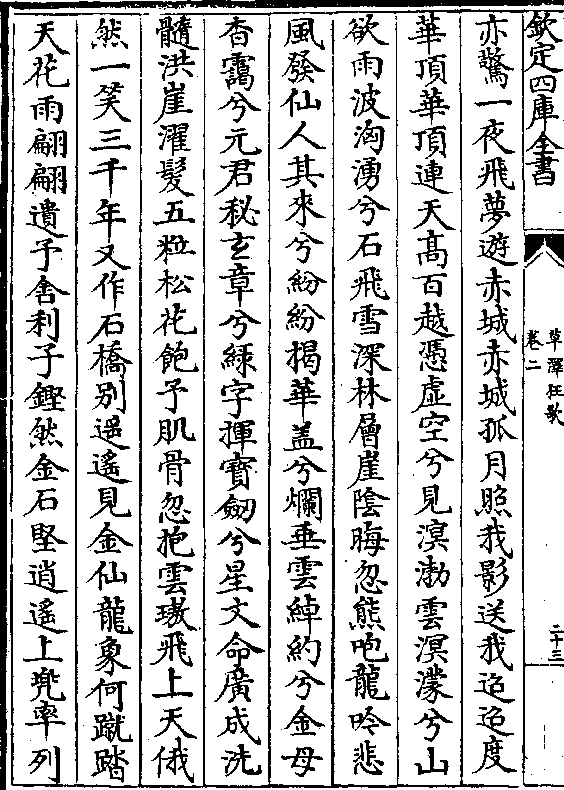 欽定四庫全書
草澤狂歌
卷二
二十三
亦驚一夜飛夢遊赤城赤城孤月照我影送我迢迢度
華頂華頂連天髙百越憑虚空兮見溟渤雲溟濛兮山
欲雨波洶湧兮石飛雪深林層崖陰晦忽熊咆龍吟悲
風發仙人其來兮紛紛揭華盖兮爛垂雲綽約兮金母
杳靄兮元君秘玄章兮緑字揮寳劒兮星文命廣成洗
髓洪崖濯髪五粒松花飽予肌骨忽抱雲璈飛上天俄
然一笑三千年又作石橋别遥遥見金仙龍象何蹴踏
天花雨翩翩遺予舍利子鏗然金石堅逍遥上兜率列